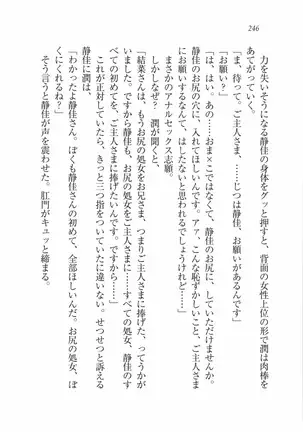 246
力を失いそうになる静佳の身体をグッと押すと、背面の女性上位の形で潤は肉棒を
あてがっていく。
「ま、待って。ご主人さま、……じつは静佳、お願いがあるんです」
「お願い？」
「は、はい。あの……おま×こではなくて、静佳のお尻に、していただけませんか。
静佳のお尻の穴に、入れてほしいんです。アァ、こんな恥ずかしいこと、ご主人さま
にお願いするなんて、はしたないと思われるでしょうけれど……」
まさかのアナルセックス志願。
しかしなぜ？　潤が聞くと、
「結菜さんは、もうお尻の処女をお兄さま、つまりご主人さまに捧げた、ってうかが
いました。ですから静佳も、お尻の処女をご主人さまに……すべての処女、静佳のす
べての初めてを、ご主人さまに捧げたいんです。ですから……」
これが正対していたら、きっと三つ指をついていたに違いない。せつせつと訴える
静佳に潤は、
「わかったよ静佳さん。ぼくも静佳さんの初めて、全部ほしいんだ。お尻の処女、ぼ
くにくれるね？」
そう言うと静佳が声を震わせた。肛門がキュッと締まる。